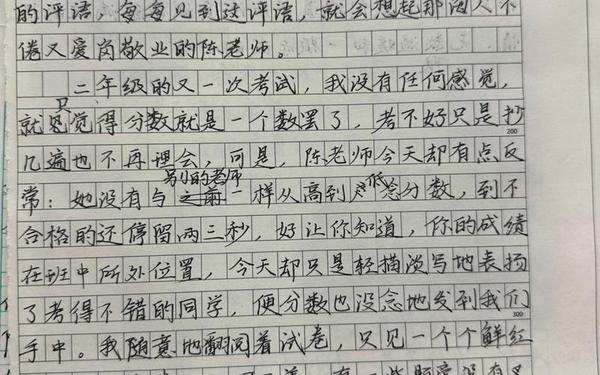 的评语，每每见到这评语，就会想起那诲人不
倦又爱岗敬业的陈老师。
二年级的又一次考试，我没有任何感觉，
就只觉得分数就是一个数罢了，考不好只是抄
200
几遍也不再理会，可是，陈老师今天却有点反
另外的老师
常：她没有与之前一样从高到低念分数，到不
合格的还停留两三秒，好让你知道，你的成绩
在班中所处位置，今天却只是轻描淡写地表扬
了考得不错的同学，便分数也没念地发到我们
300
手中。我随意地翻阅着试卷，只见一个个鲜红